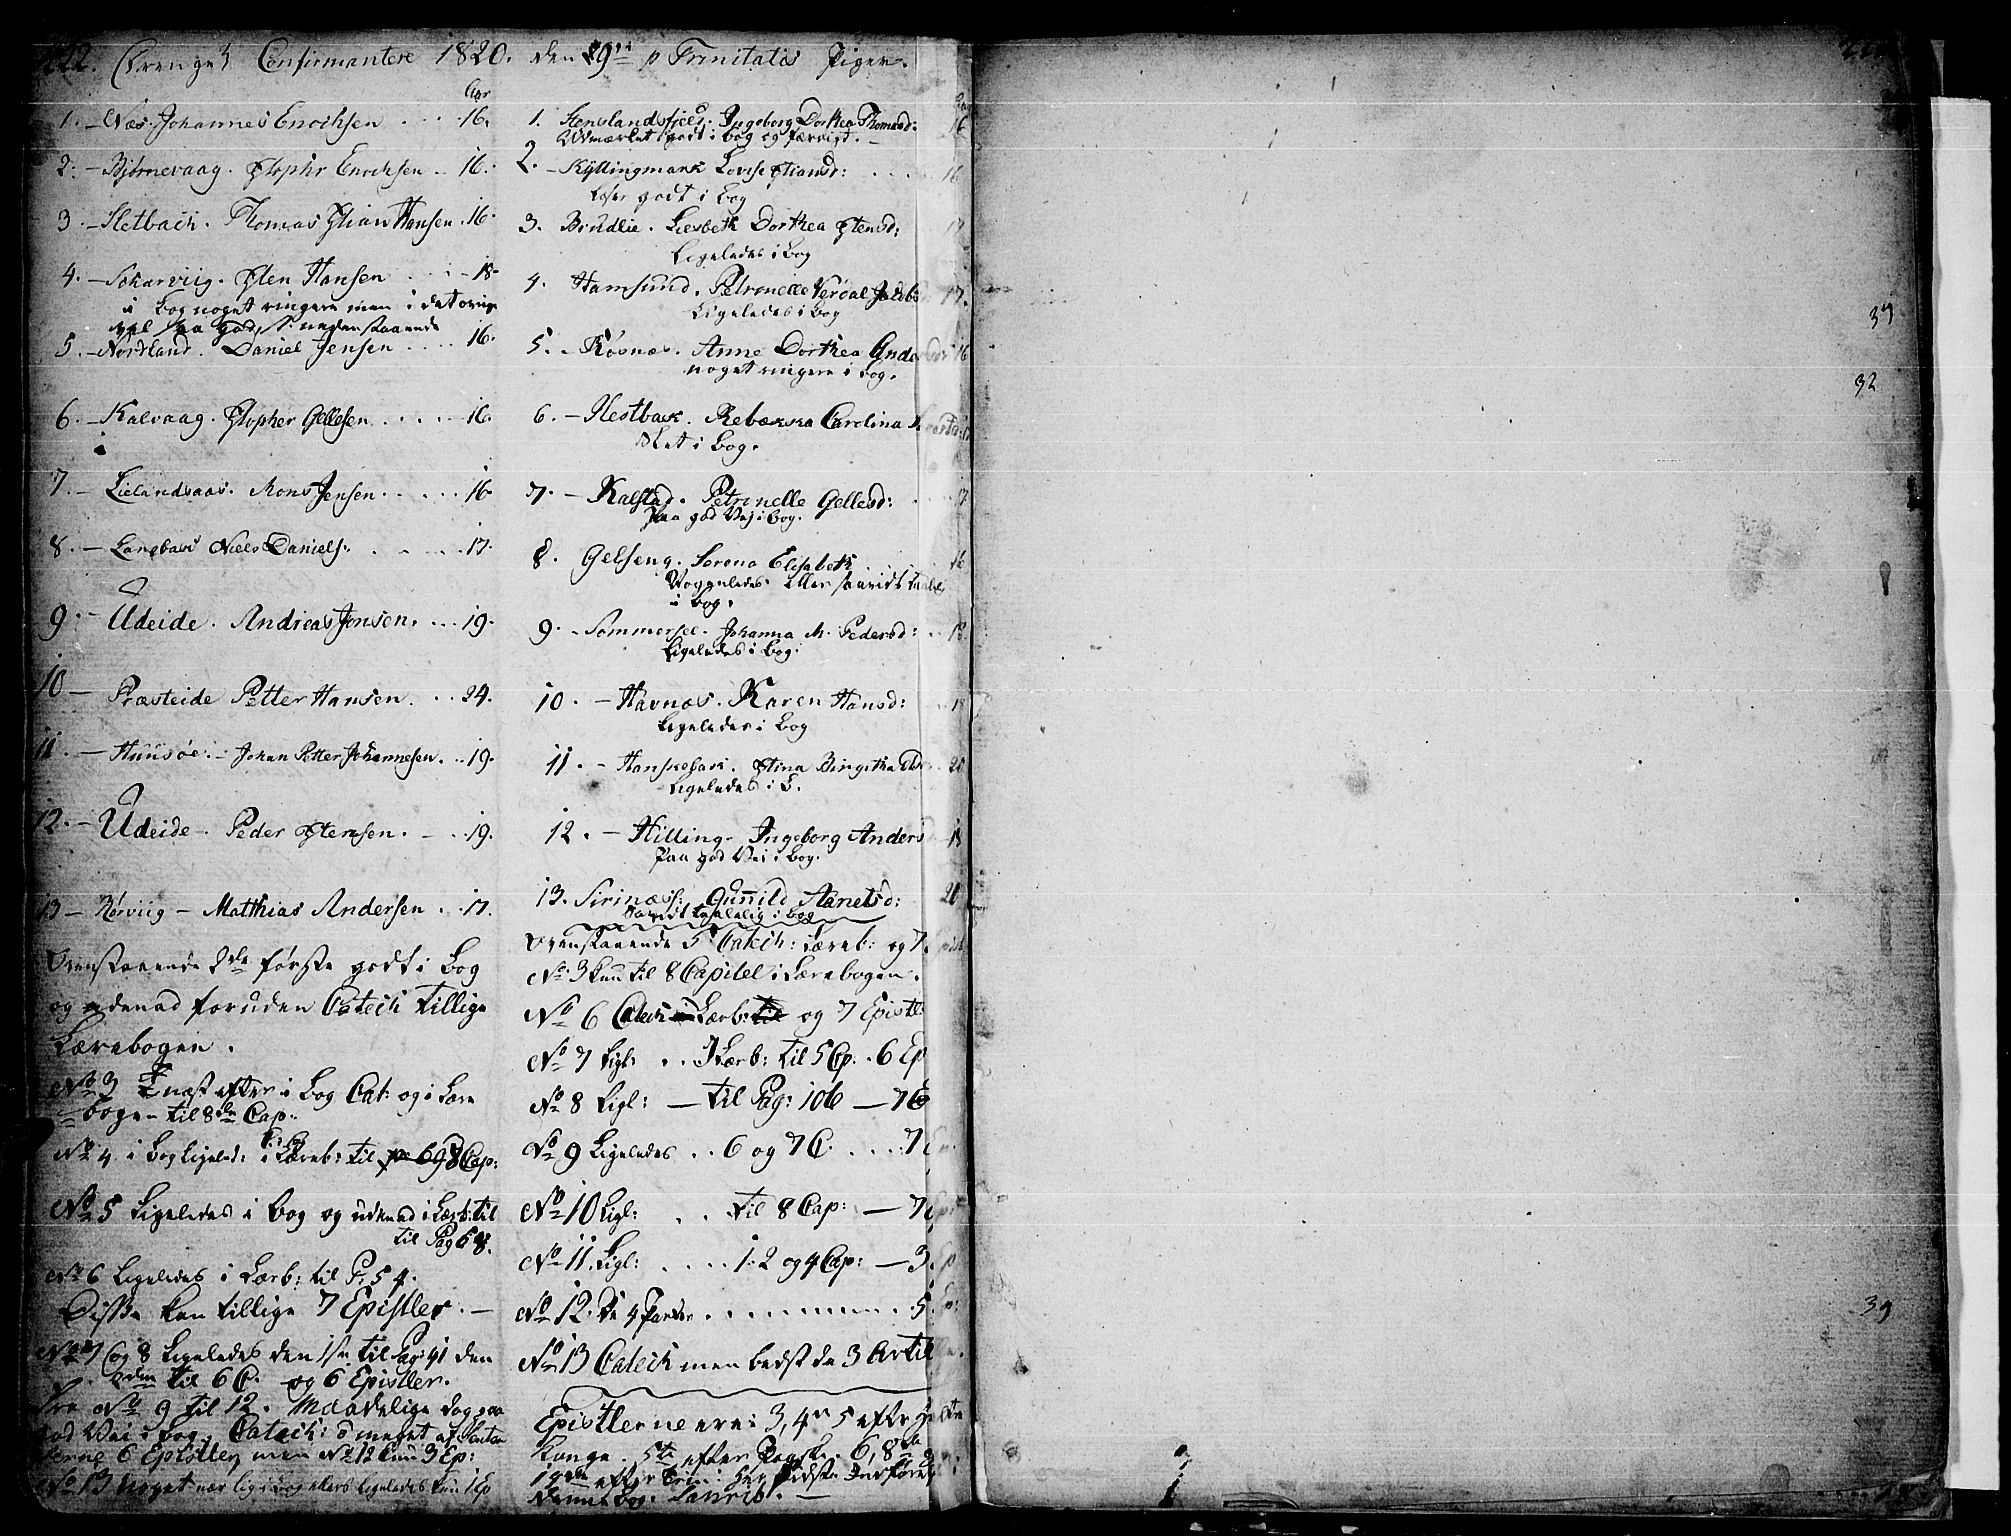 222. Drenge Confirmantere 1820. den 19de p Trinitatis Piger.
Aar
1. - Næs. Johannes Enochsen . . . 16.
2. - Bjørnevaag. Stopher Enochsen . . 16.
3. - Sletback. Thomas Stian Hansen . 16.
4. - Skarviig. Sten Hansen . . . 18.
i Bog noget ringere men i det øvrige
vel paa god, s. nedenstaaende
5. - Nordland. Daniel Jensen . . . . 16.
6. - Kalvaag. Stopher Gellesen . . . . 16.
7. - Lielandsaas. Mons Jensen . . . . . 16
8. - Langbak Niels Daniels: . . . . 17.
9. - Udeide. Andreas Jonsen. . . . 19.
10 - Præsteide Petter Hansen. . . 24.
11. - Huusøe. - Johan Petter Johannesen. . . 19.
12. - Udeide. Peder Stensen. . . . 19.
13 - Rørviig - Matthias Andersen . . 17.
Ovenstaaende 2de første godt i Bog
og udenad foruden Catech tillige
Lærebogen.
No 3 næst efter i Bog Cat: og i Lære
bogen til 8de Cap:
No 4. i Bog Ligeled: i Læreb: til 8 Cap:
No 5 Ligeledes i Bog og udenad i Lærb: til
til Pag 68.
No 6 Ligeledes i Lærb: til P. 54.
Disse kan tillige 7 Epistler. -
No 7 og 8 Ligeledes den 1ste til Pag: 41 den
2den til 6 C. og 6 Epistler.
Fra No 9 til 12. Maadelige dog paa
god Vei i bog. Catech: meget af
6 Epistler men No 12 kun 3 Ep:
No 13 noget lig i bog ellers Ligeledes kun 1 Ep
1. Stenslandsfjeld. Ingeborg Dorthea Thomasd: 16
Udmærket godt i bog og færdigt. -
2. - Kyllingmark Lovise Stiansd: . . . . 16
Læser godt i Bog
3. Bindlie. Liesbeth Dorthea Stensd: 17
Ligeledes i Bog
4. Hamsund. Petronelle Jacobs 17.
Ligeledes i Bog
5. - Røsnæs. Anne Dorthea Anders 16
noget ringere i bog.
6. - Nestbak. Rebækka Carolina
Slet i bog.
7. - Kalstad. Petronelle Gellesd: 17
Paa god Vej i bog.
8. Gelseng. Serena Elisabeth . . . 16
eller saavidt
i bog.
9. - Sommersel. Johanna M. Pedersd: . . 18.
Ligeledes i bog.
10. - Havnæs. Karen Hansd: . . 18
Ligeledes i Bog
11. - Hanskebak. Stina Birgitha 20
Ligeledes i B.
12. - Hilling. Ingeborg Anders 18
Paa god Vei i bog.
13. Sirinæs: Gunild Aanetsd: 20
i bog
Ovenstaaende 5 Catech: Læreb: og 7
No 3 kun til 8 Capitel i Lærebogen.
No 6 Catech Lærb: og 7 Epistl
No 7 Ligl: . . I Lærb: til 5 Cp: . 6 Ep
No 8 Ligl: - til Pag: 106 - 7 E
No 9 Ligeledes . . 6 og 7 C. . . . . 7
No 10 Ligl: . . til 8 Cap: - 7 Ep:
No 11. Ligl: . . . . . 1. 2 og 4 Cap: - 3 Ep
No 12. De 4 Parter . . . . . . 5 Ep:
No 13 Catech men bedst de 3 Artik
Epistlerne ere: 3, 4de 5 efter Hell
Konge. 5te efter Paaske 6, 8de
19de efter Trin:
39
32
39